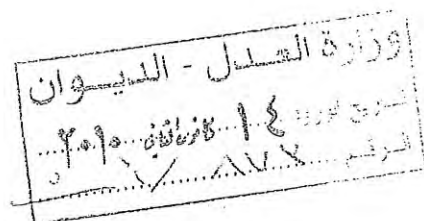 وزارة العدل - الديوان
تاريخ الورود ١٤ كانون الثاني ٢٠١٠
الرقم ٨٧٢ / ٧